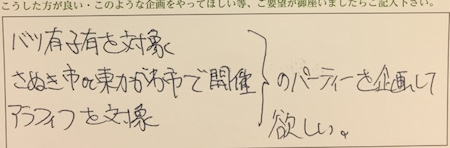 こうした方が良い・このような企画をやってほしい等、ご要望が御座いましたらご記入下さい。
バツ有子有を対象
さぬき市or東かがわ市で開催
アラフィフを対象
のパーティーを企画して
欲しい。